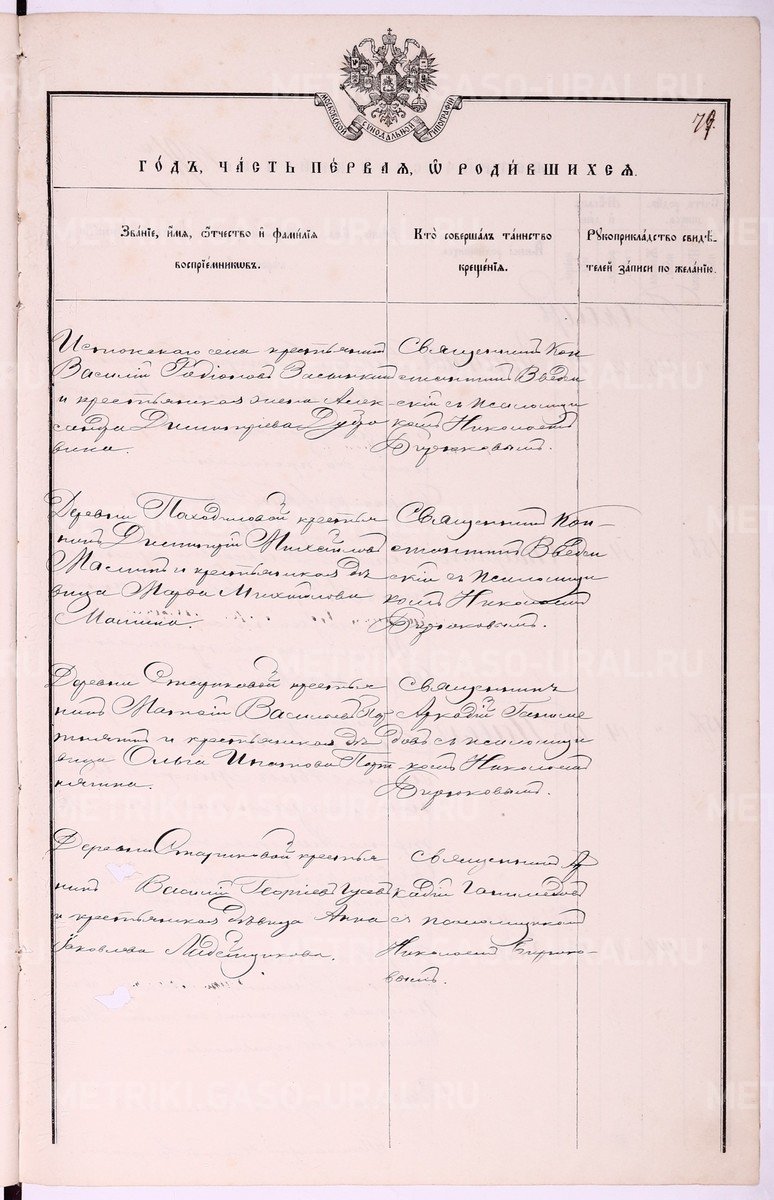 МОСКОВСКОЙ СѴНОДАЛЬНОЙ ТИПОГРАФІИ
79.
ГО́ДЪ, ЧА́СТЬ ПЕ́РВАЯ, Ѡ҆ РОДИ́ВШИХСЯ.
Зва́нїе, и҆́мя, ѻ҆́тчество и҆ фами́лїя
воспрїе́мниковъ.
Кто̀ соверша́лъ та́инство
креще́нїя.
Рꙋкоприкла́дство свидѣ́-
телей за́писи по жела́нїю.
Истокскаго села крестьянин
Василий
и крестьянская жена Алек-
сандра Димитриева
вина.
Священник Кон-
стантин Введен-
ский с псаломщи-
ком Николаем
Бирюковым.
Деревни крестья-
нин Димитрий Михайлов
Малыгин и крестьянская дѣ-
вица Марѳа Михайлова
Священник Кон-
стантин Введен-
ский с псаломщи-
ком Николаем
Бирюковым.
Деревни Стариковой крестья-
нин Матвей Васильев
и крестьянская дѣ-
вица Ольга Игнатова
Священник
Аркадий Ганиме-
дов с псаломщи-
ком Николаем
Бирюковым.
Деревни Стариковой крестья-
нин Василий Георгиев Гусев
и крестьянская дѣвица Анна
Яковлева
Священник Ар-
кадий Ганимедов
с псаломщиком
Николаем Бирюко-
вым.
METRIKI.GASO-URAL.RU